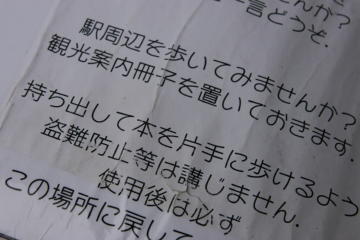 せんか?
言どうぞ.
駅周辺を歩いてみませんか?
観光案内冊子を置いておきます.
持ち出して本を片手に歩けるよう
盗難防止等は講じません.
使用後は必ず
この場所に戻して